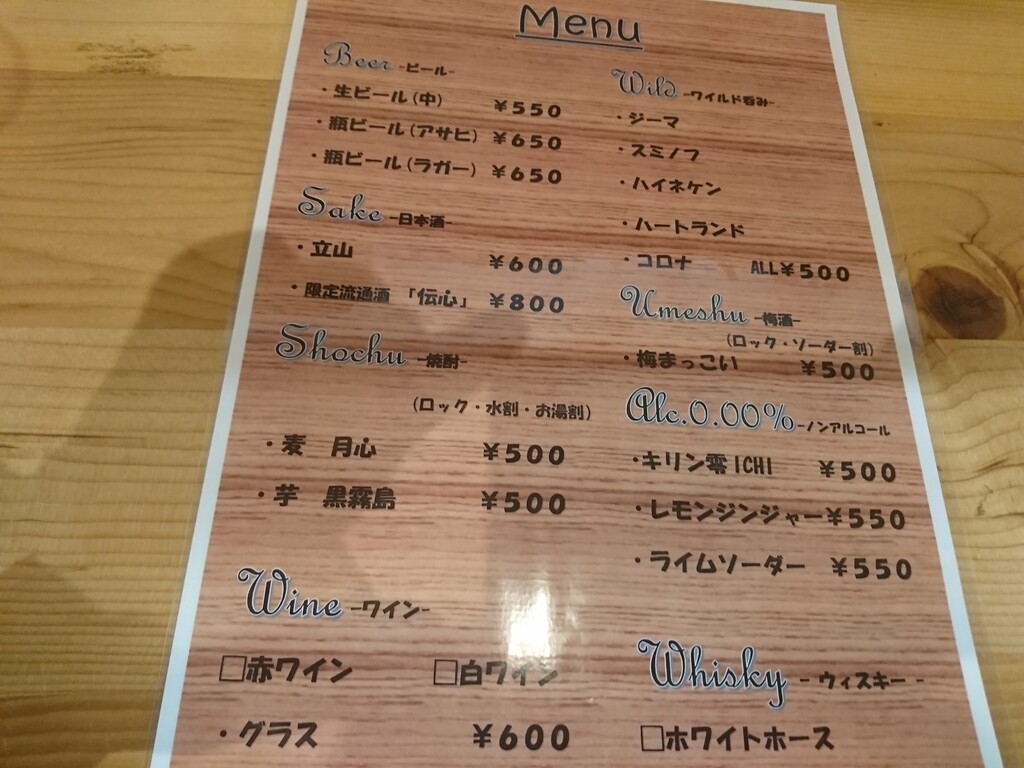 Menu
Beer -ビール-
・生ビール(中) ¥550
・瓶ビール(アサヒ) ¥650
・瓶ビール(ラガー) ¥650
Sake -日本酒-
・立山 ¥600
・限定流通酒 「伝心」 ¥800
Shochu -焼酎-
(ロック・水割・お湯割)
・麦 月心 ¥500
・芋 黒霧島 ¥500
Wine -ワイン-
□赤ワイン □白ワイン
・グラス ¥600
Wild -ワイルド呑み-
・ジーマ
・スミノフ
・ハイネケン
・ハートランド
・コロナ ALL¥500
Umeshu -梅酒-
(ロック・ソーダー割)
・梅まっこい ¥500
Alc.0.00% -ノンアルコール
・キリン零ICHI ¥500
・レモンジンジャー¥550
・ライムソーダー ¥550
Whisky - ウィスキー -
□ホワイトホース